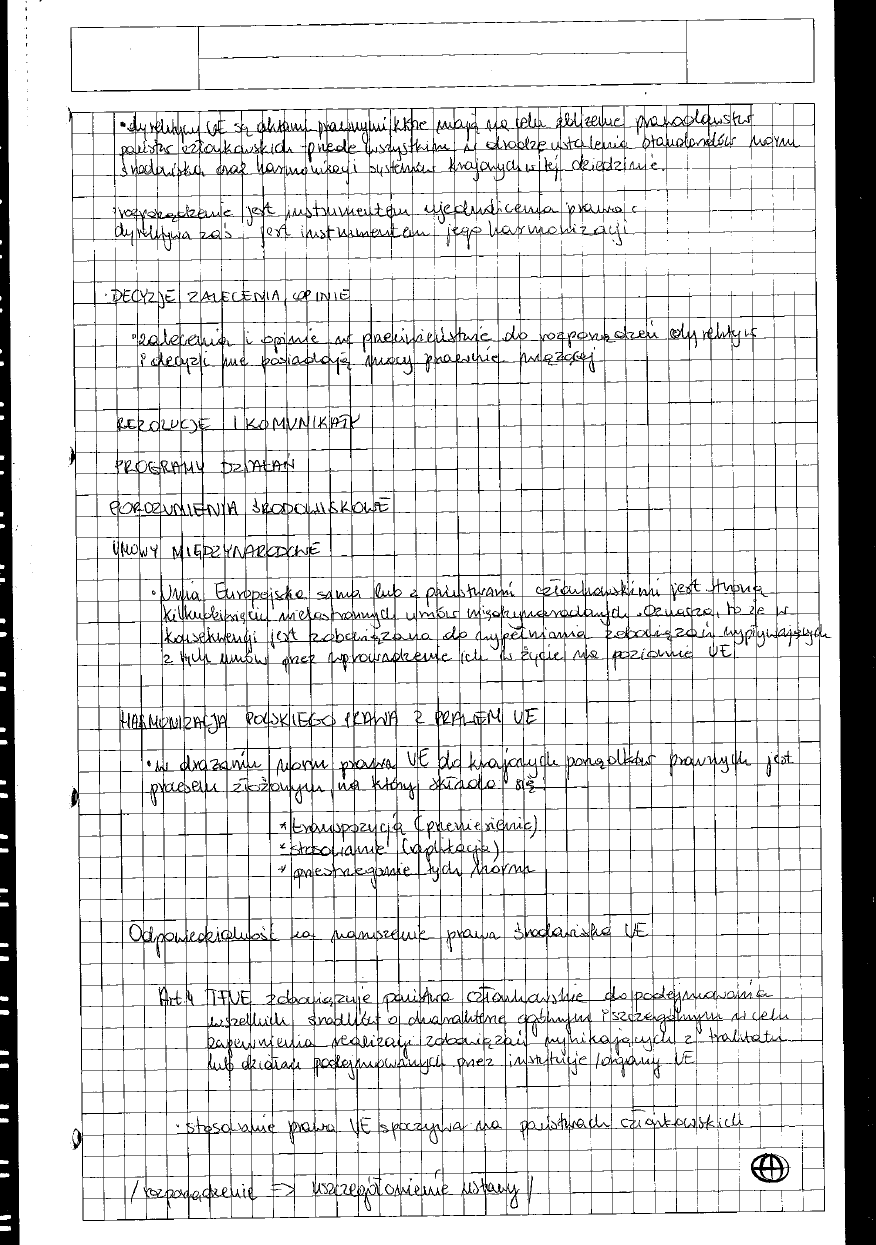 • dyrektywy UE są aktami prawnymi które mają na celu zbliżenie prawodawstw
państw członkowskich przede wszystkim w drodze ustalenia standardów norm
środowiska oraz harmonizacji systemów krajowych w tej dziedzinie.
• rozporządzenie jest instrumentem ujednolicenia prawa
dyrektywa zaś jest instrumentem jego harmonizacji
• DECYZJE ZALECENIA, OPINIE
• zalecenia i opinie w przeciwieństwie do rozporządzeń dyrektyw
i decyzji nie posiadają mocy prawnie wiążącej
REZOLUCJE I KOMUNIKATY
PROGRAMY DZIAŁAŃ
POROZUMIENIA ŚRODOWISKOWE
UMOWY MIĘDZYNARODOWE
• Unia Europejska sama lub z państwami członkowskimi jest stroną
kilkudziesięciu umów międzynarodowych. Oznacza, to że w
konsekwencji jest zobowiązana do wypełniania zobowiązań wypływających
z tych umów przez wprowadzenie ich w życie na poziomie UE
HARMONIZACJA POLSKIEGO PRAWA Z PRAWEM UE
• w drażaniu norm prawa UE do krajowych porządków prawnych jest
procesem złożonym na który składa się
* transpozycja (przeniesienie)
* stosowanie (aplikacja)
* przestrzeganie tych norm
Odpowiedzialność za naruszenie prawa środowiska UE
Art. 4 TFUE zobowiązuje państwa członkowskie do podejmowania
wszelkich środków o charakterze ogólnym i szczególnym w celu
zapewnienia realizacji zobowiązań wynikających z traktatu
lub działań podejmowanych przez instytucje/organy UE
• stosowanie prawa UE spoczywa na państwach członkowskich
/ rozporządzenie => uszczegółowienie ustawy /